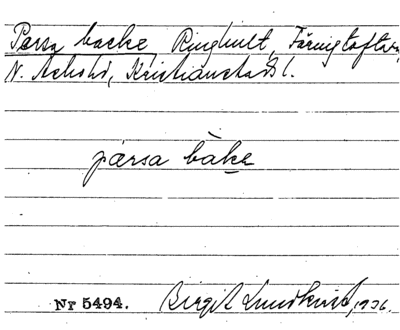 Persa backe, Ringhult, Färingtofta,
N. Åsbohd, Kristianstads l.
pærsa bàke
Nr 5494. Birgit Lundkvist, 1926.